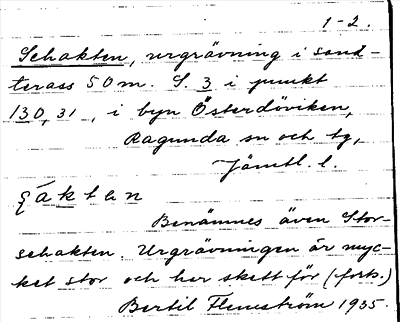 1-2.
Schakten, urgrävning i sand-
terass 50 m. S. 3 i punkt
130,31, i byn Österdöviken,
Ragunda sn och tg,
Jämtl. l.
ʃáktɘn
Benämnes även Stor-
schakten. Urgrävningen är myc-
ket stor och har skett för (forts.)
Bertil Flemström 1935.